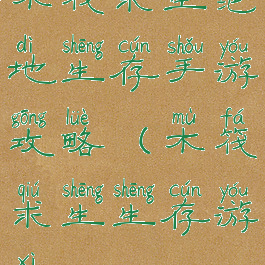 dì shēng cún shǒu yóu
地生存手游
gōng lüè mù fá
攻略(木筏
qiú shēng shēng cún yóu
求生生存游
xì